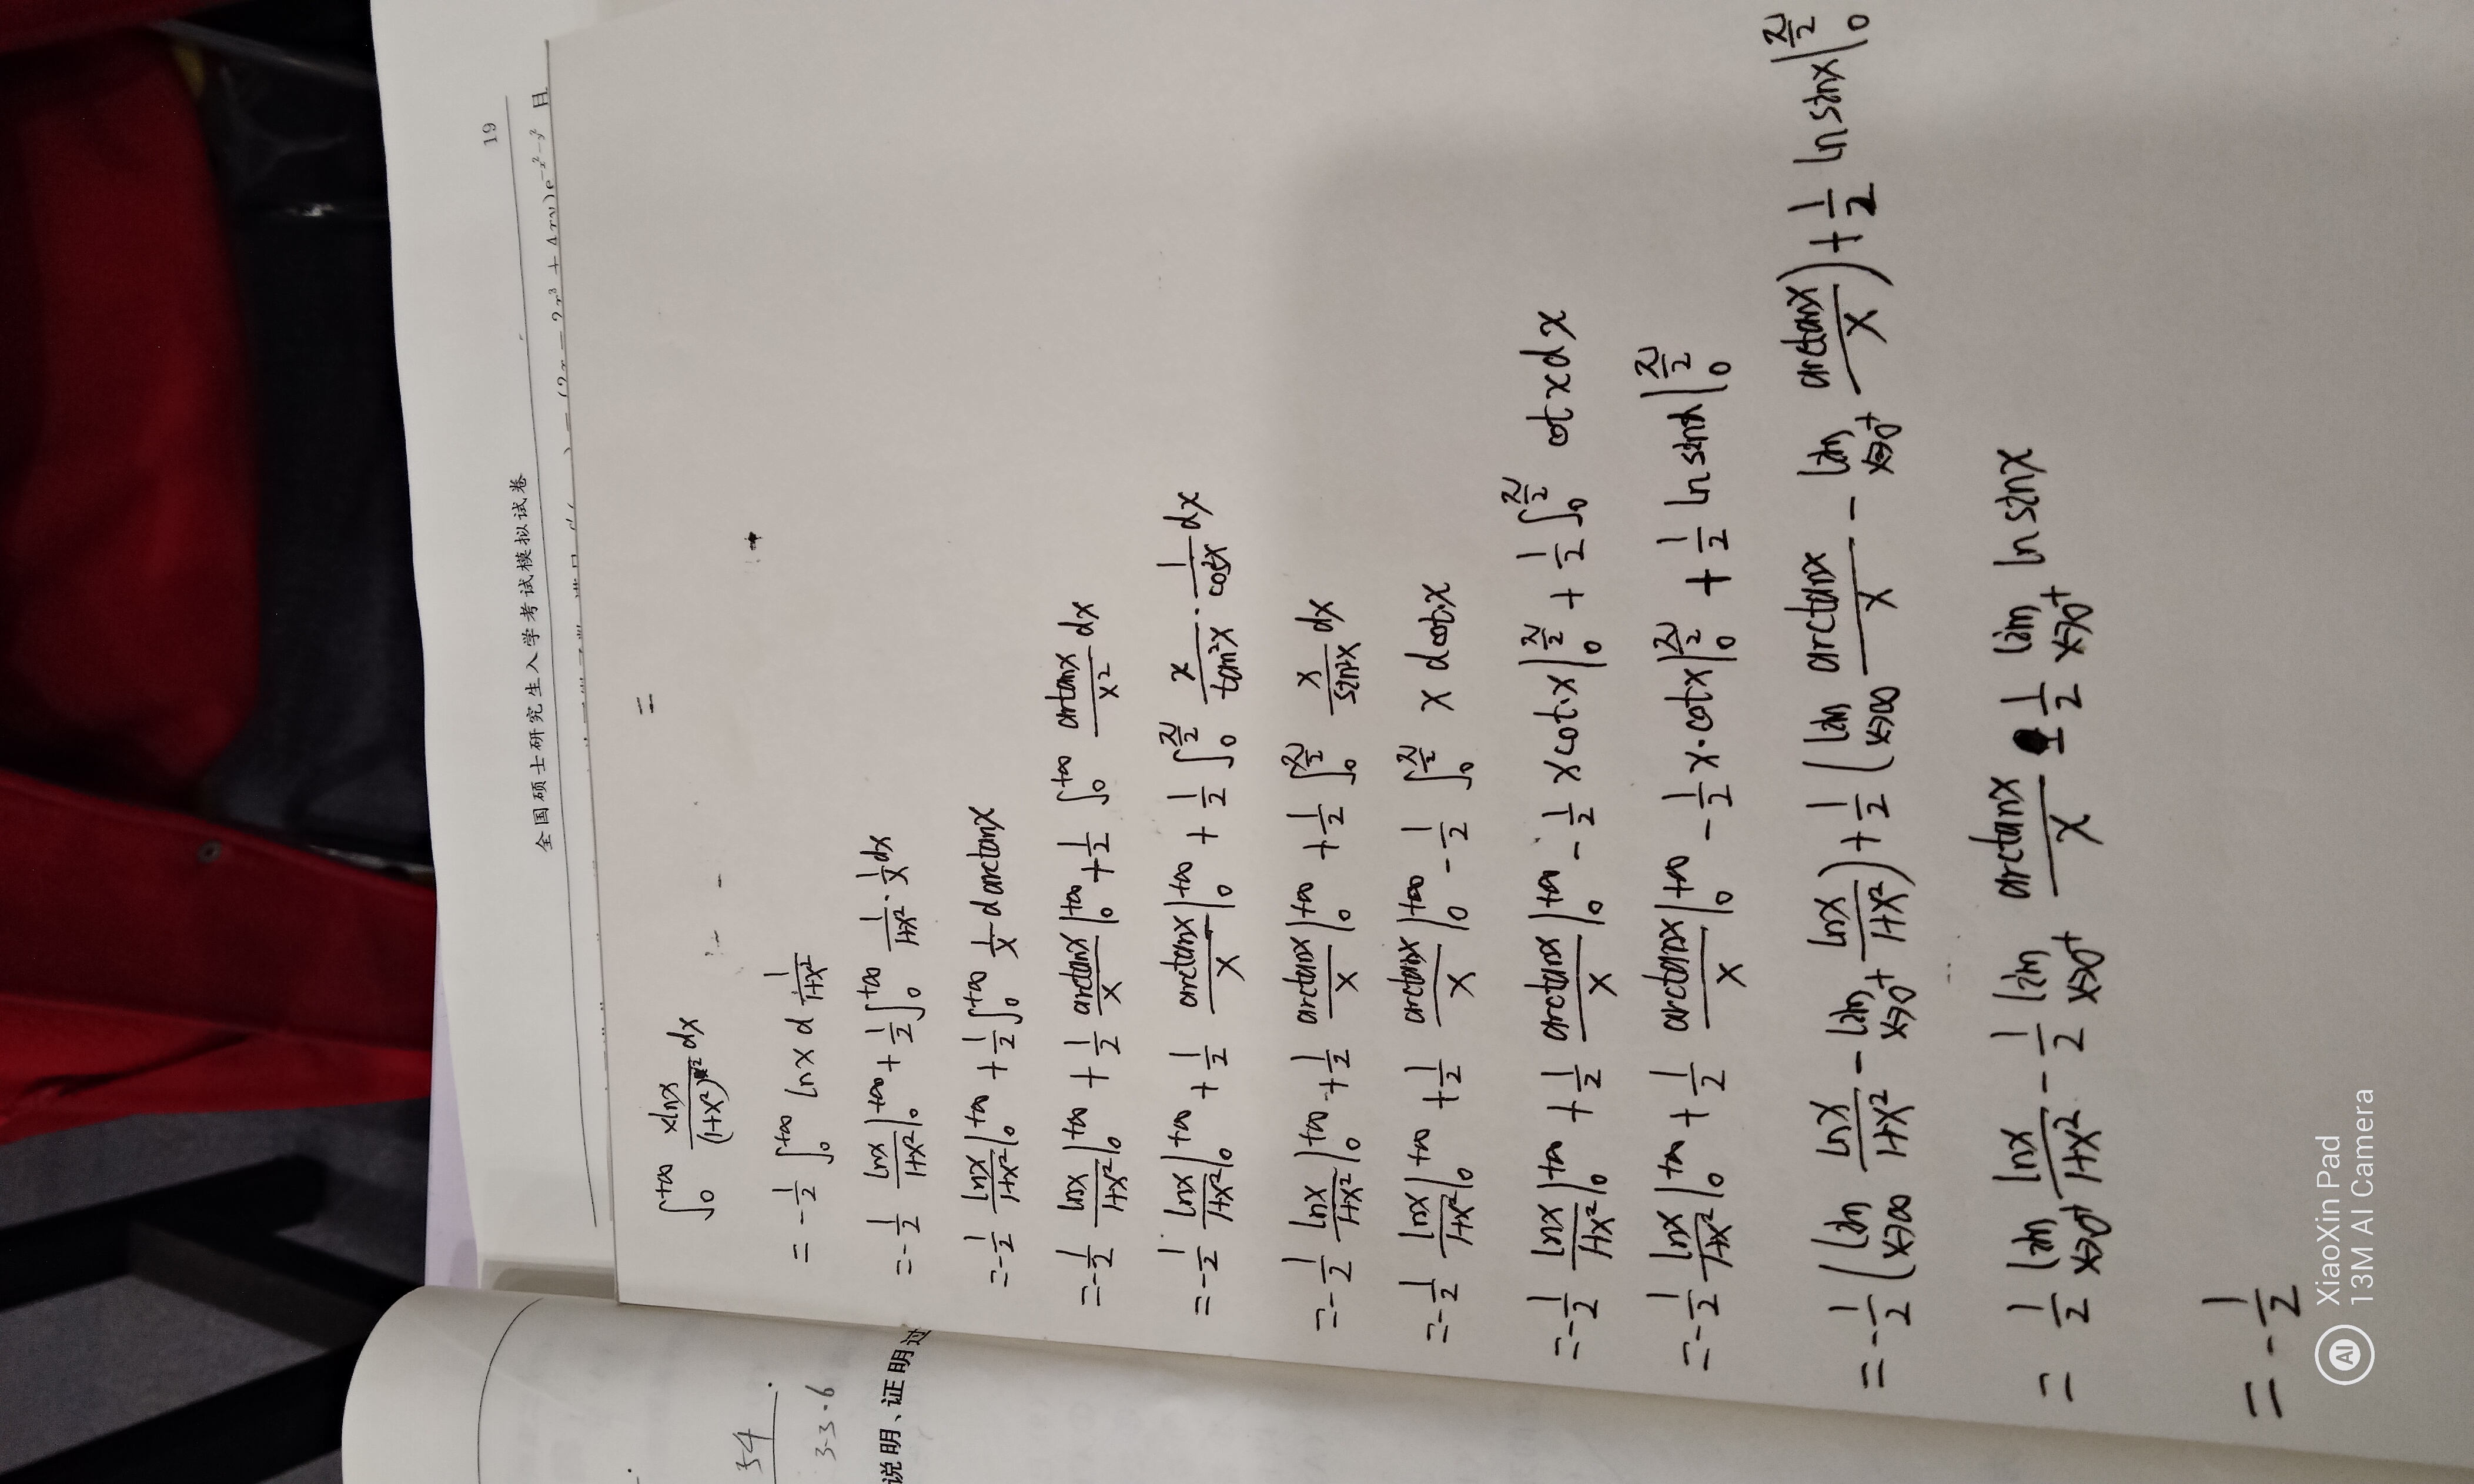 19
全国硕士研究生入学考试模拟试卷
e^{-x^2-y^2} 且
∫_0^{+∞} \frac{xlnx}{(1+x^2)^2} dx
=
= -\frac{1}{2} ∫_0^{+∞} lnx d \frac{1}{1+x^2}
= -\frac{1}{2} \frac{lnx}{1+x^2} |_0^{+∞} + \frac{1}{2} ∫_0^{+∞} \frac{1}{1+x^2} · \frac{1}{x} dx
= -\frac{1}{2} \frac{lnx}{1+x^2} |_0^{+∞} + \frac{1}{2} ∫_0^{+∞} \frac{1}{x} d arctanx
= -\frac{1}{2} \frac{lnx}{1+x^2} |_0^{+∞} + \frac{1}{2} \frac{arctanx}{x} |_0^{+∞} + \frac{1}{2} ∫_0^{+∞} \frac{arctanx}{x^2} dx
= -\frac{1}{2} \frac{lnx}{1+x^2} |_0^{+∞} + \frac{1}{2} \frac{arctanx}{x} |_0^{+∞} + \frac{1}{2} ∫_0^{\frac{π}{2}} \frac{x}{tan^2x} · \frac{1}{cos^2x} dx
= -\frac{1}{2} \frac{lnx}{1+x^2} |_0^{+∞} + \frac{1}{2} \frac{arctanx}{x} |_0^{+∞} + \frac{1}{2} ∫_0^{\frac{π}{2}} \frac{x}{sin^2x} dx
= -\frac{1}{2} \frac{lnx}{1+x^2} |_0^{+∞} + \frac{1}{2} \frac{arctanx}{x} |_0^{+∞} - \frac{1}{2} ∫_0^{\frac{π}{2}} x d cotx
= -\frac{1}{2} \frac{lnx}{1+x^2} |_0^{+∞} + \frac{1}{2} \frac{arctanx}{x} |_0^{+∞} - \frac{1}{2} x cotx |_0^{\frac{π}{2}} + \frac{1}{2} ∫_0^{\frac{π}{2}} cotxdx
= -\frac{1}{2} \frac{lnx}{1+x^2} |_0^{+∞} + \frac{1}{2} \frac{arctanx}{x} |_0^{+∞} - \frac{1}{2} x·cotx |_0^{\frac{π}{2}} + \frac{1}{2} ln sinx |_0^{\frac{π}{2}}
= -\frac{1}{2} (lim_{x→∞} \frac{lnx}{1+x^2} - lim_{x→0^+} \frac{lnx}{1+x^2}) + \frac{1}{2} (lim_{x→∞} \frac{arctanx}{x} - lim_{x→0^+} \frac{arctanx}{x}) + \frac{1}{2} ln sinx |_0^{\frac{π}{2}}
= \frac{1}{2} lim_{x→0^+} \frac{lnx}{1+x^2} - \frac{1}{2} lim_{x→0^+} \frac{arctanx}{x} - \frac{1}{2} lim_{x→0^+} ln sinx
= -\frac{1}{2}
54
3-3·6
说明、证明过
XiaoXin Pad
13M AI Camera
AI